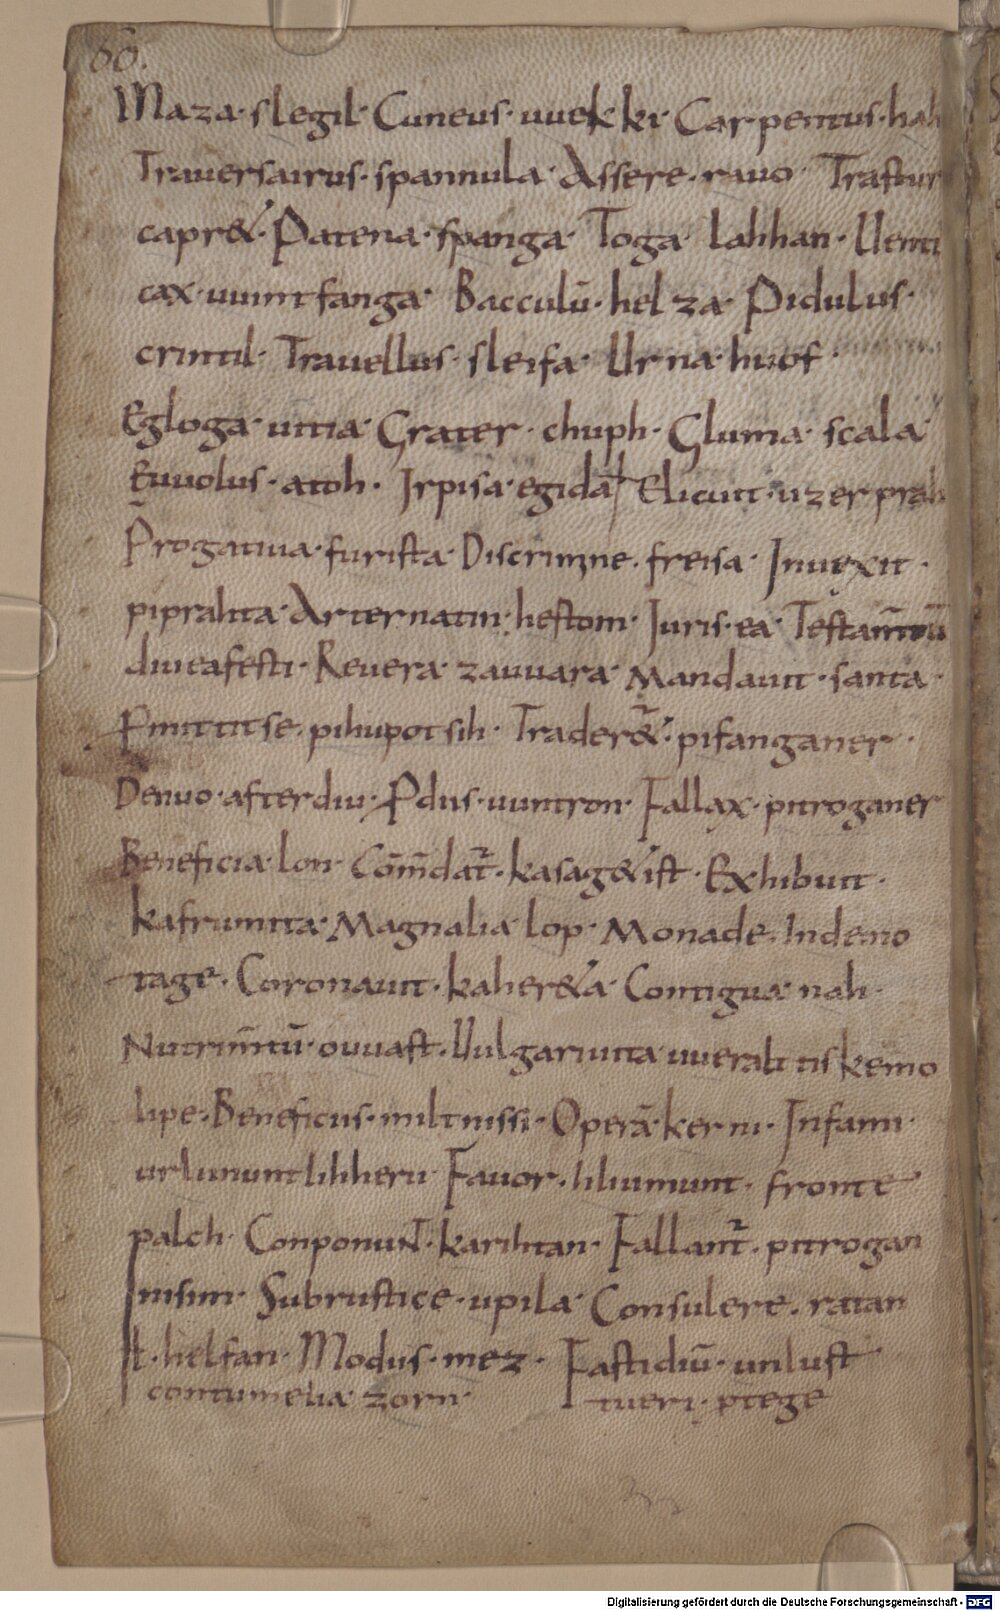 60.
Maza· slegil· Cuneus· uuekki· Carpentus· hah
Trauersarius· spannula· Assere· rauo· Trastur
capr&· Patena· spanga· Toga· lahhan· Uenti
cax· uuintfanga· Bacculū· helza· Pidulus·
crintil· Trauellus· sleifa· Urna· huof·
Egloga· uitia· Crater· chuph· Gluma· scala·
Euuolus· atoh· Irpisa· egida· Elicuit· uzerprah
Progatiua· furista· Discrimine· freisa· Inuexit·
piprahta· Arternatin· heftom· Iuris· ea·
diu eafesti· Reuera· zauuara· Mandauit· santa·
pihupot sih· pifanganer·
Denuo· afterdiu· uuntron· Fallax· pitroganer
Beneficia· lon· kasag& ist· Exhibuit·
kafrumita· Magnalia· lop· Monade· In deino
tage· Coronauit· kaher&a· Contigua· nah·
ouuast· Uulgariuita· uuerahtis kemo
lipe· Beneficus· miltnissi· Operā· kerni· Infami·
urliumunt lihheru· Fauor· liliumunt· fronte
palch· Conponunt· karihtan· pitrogan
Subrustice· upila· Consulere· ratan
ɫ· helfan· Modus· mez· Fastidiū· unlust
contumelia· zorn· tueri· ptege
Digitalisierung gefördert durch die Deutsche Forschungsgemeinschaft - DFG